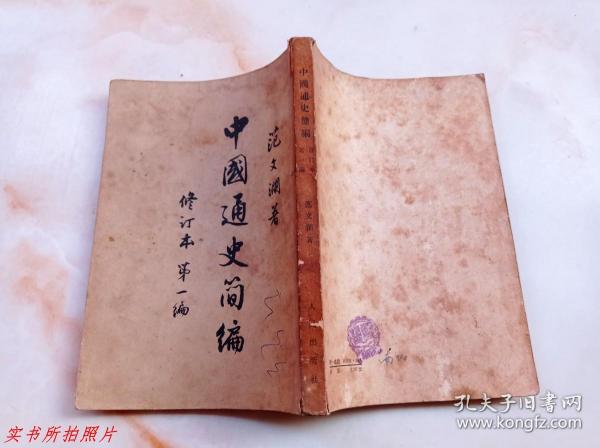 范文瀾著
中國通史简编
修订本 第一编
中國通史簡編
范文瀾著
人民出版社
实书所拍照片
孔夫子旧书网
www.kongfz.com